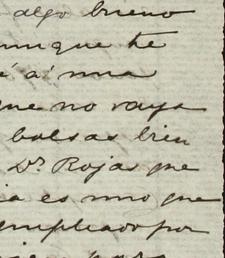 algo bueno
aunque te
é á una
que no vaya
bolsas bien
Dr. Rojas que
ia es uno que
empleado por
para